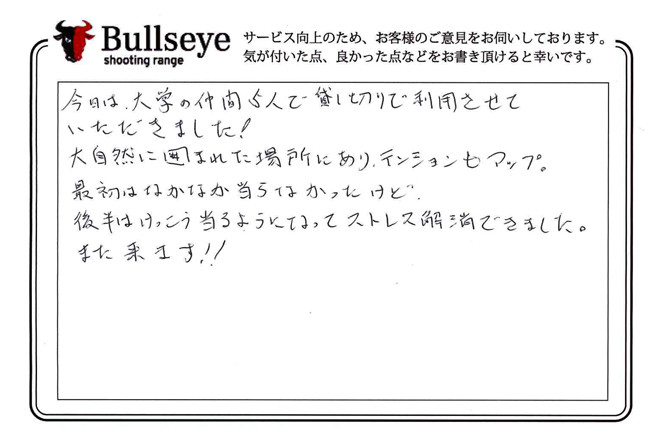 Bullseye
shooting range
サービス向上のため、お客様のご意見をお伺いしております。
気が付いた点、良かった点などをお書き頂けると幸いです。
今日は、大学の仲間5人で貸し切りで利用させて
いただきました!
大自然に囲まれた場所にあり、テンションもマップ。
最初はなかなか当らなかったけど、
後半はけっこう当るようになってストレス解消できました。
また来ます!!